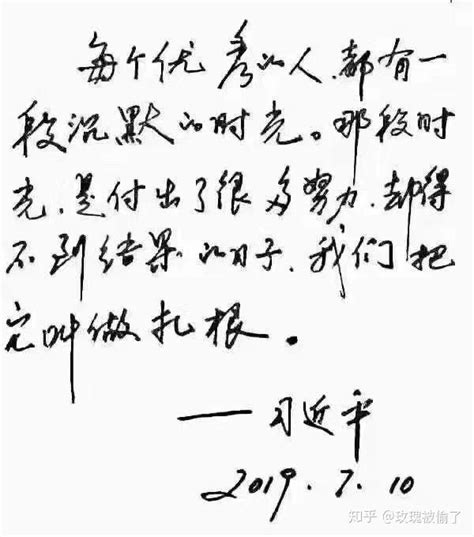 每个优秀的人,都有一
段沉默的时光。那段时
光,是付出了很多努力,却得
不到结果的日子,我们把
它叫做扎根。
——习近平
2019.7.10
知乎 @玫瑰被偷了